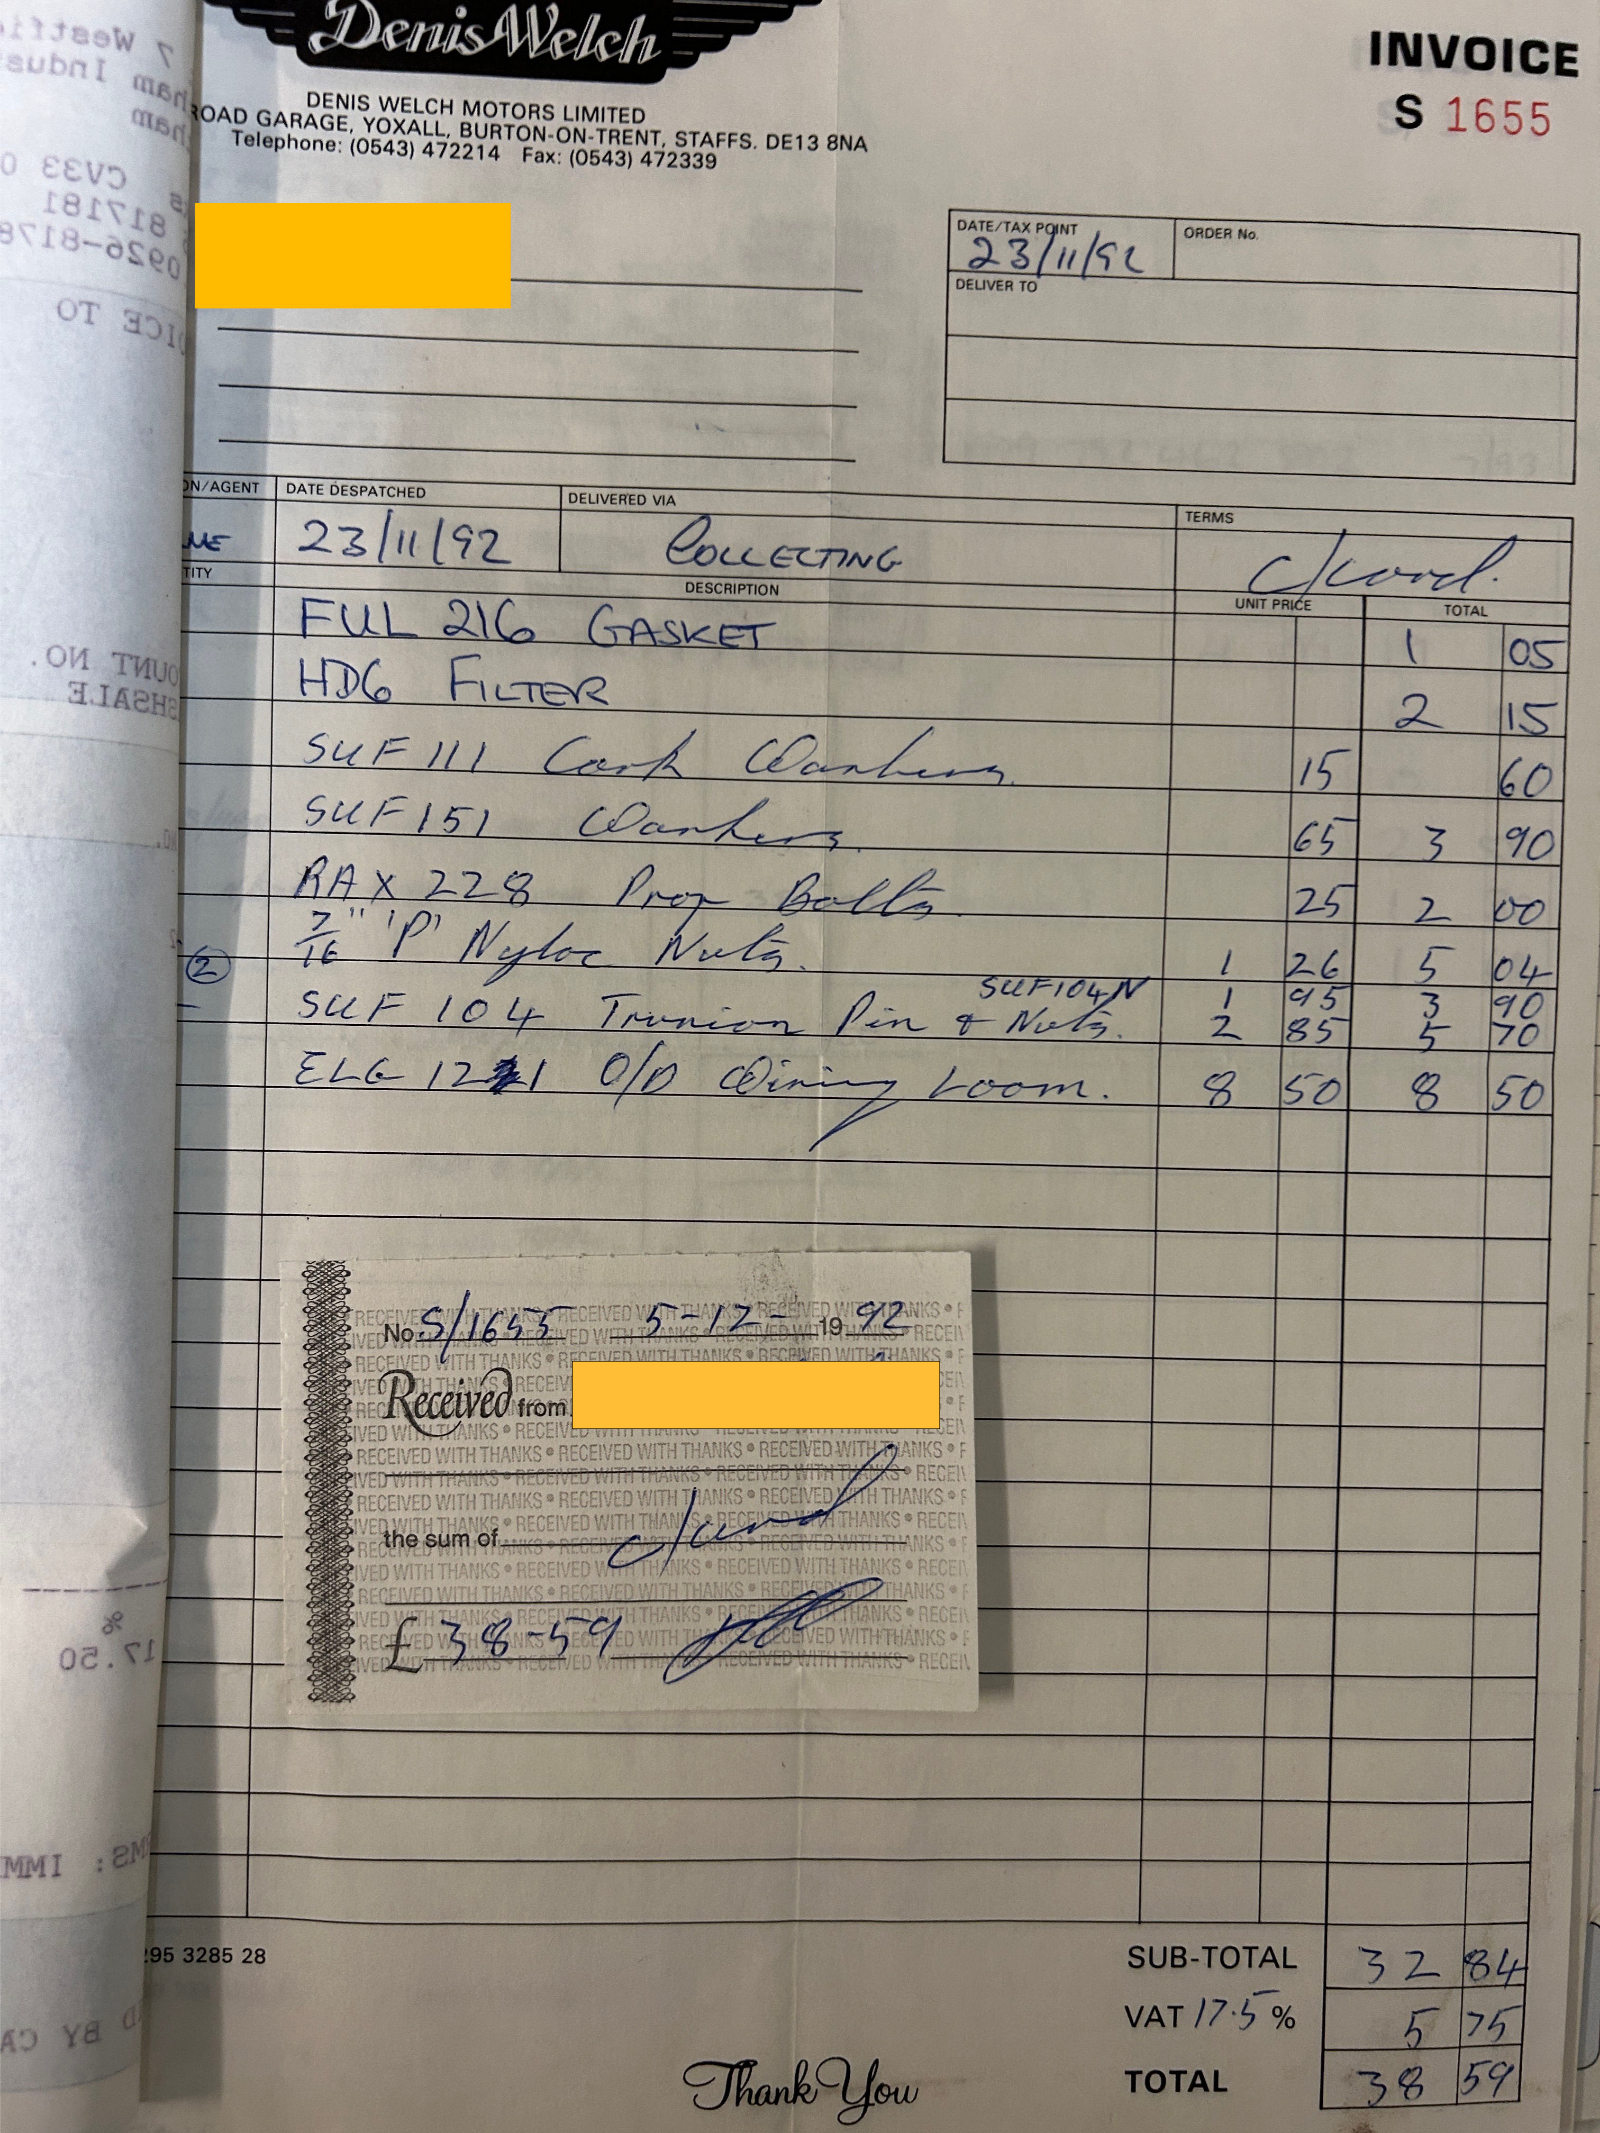 Denis Welch
INVOICE
S 1655
DENIS WELCH MOTORS LIMITED
ROAD GARAGE, YOXALL, BURTON-ON-TRENT, STAFFS. DE13 8NA
Telephone: (0543) 472214 Fax: (0543) 472339
7 Westfie
ham Indus
ham
CV33 0
817181
0926-8178
OICE TO
OUNT NO.
SHSALE
%
17.50
MS: IMM
D BY CA
DATE/TAX POINT
23/11/92
ORDER No.
DELIVER TO
ON/AGENT DATE DESPATCHED DELIVERED VIA TERMS
23/11/92 COLLECTING c/card.
TITY DESCRIPTION UNIT PRICE TOTAL
FUL 216 GASKET 1 05
HD6 FILTER 2 15
SUF 111 Cork Washers. 15 60
SUF 151 Washers. 65 3 90
RAX 228 Prop Bolts. 25 2 00
7/16" 'P' Nyloc Nuts. 1 26 5 04
② SUF104N 1 95 3 90
SUF 104 Trunion Pin & Nuts. 2 85 5 70
ELG 1221 O/D Wiring Loom. 8 50 8 50
No. S/1655 5-12- 19 92
Received from
c/card
the sum of
£ 38-59
RECEIVED WITH THANKS • RECEIVED WITH THANKS • RECEIVED WITH THANKS
295 3285 28
SUB-TOTAL 32 84
VAT 17.5 % 5 75
TOTAL 38 59
Thank You